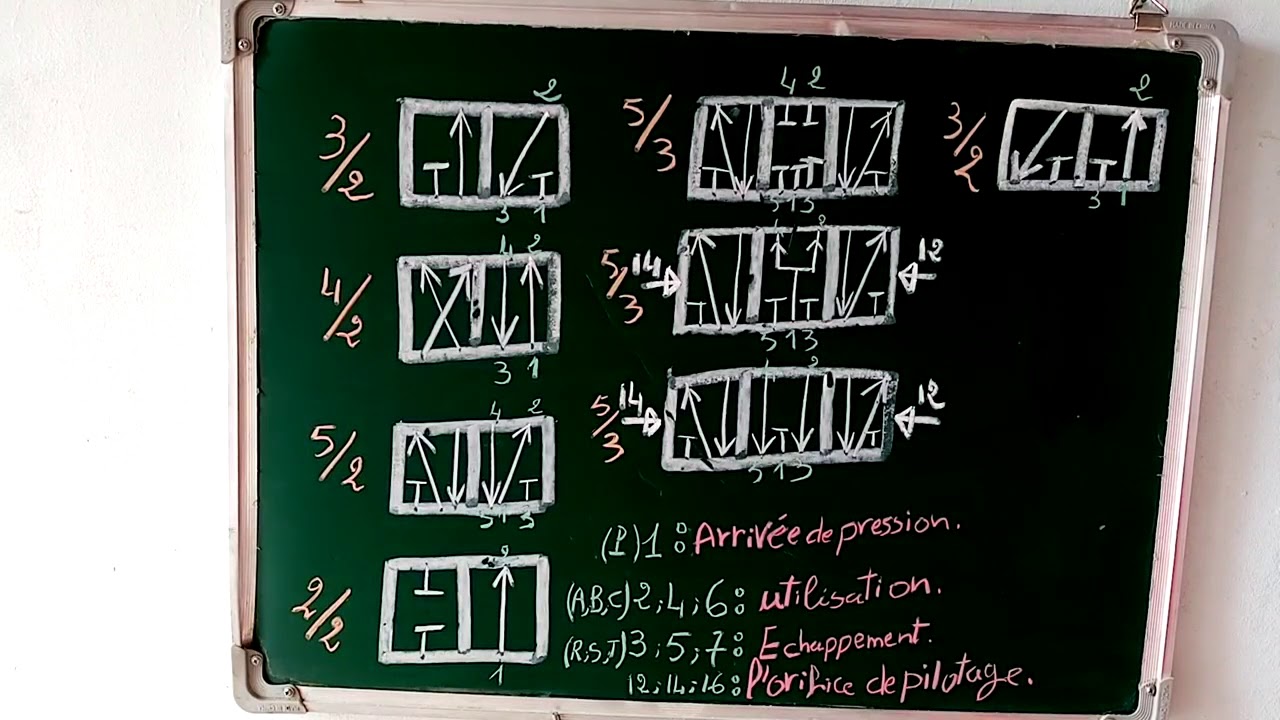 2
3/2
3 1
4 2
4/2
3 1
4 2
5/2
5 1 3
2
2/2
1
4 2
5/3
5 1 3
4 2
5/3 14 12
5 1 3
4 2
5/3 14 12
5 1 3
2
3/2
3 1
(P) 1 : Arrivée de pression.
(A,B,C) 2;4;6: utilisation.
(R;S,T) 3;5;7: Echappement.
12;14;16: l'orifice de pilotage.